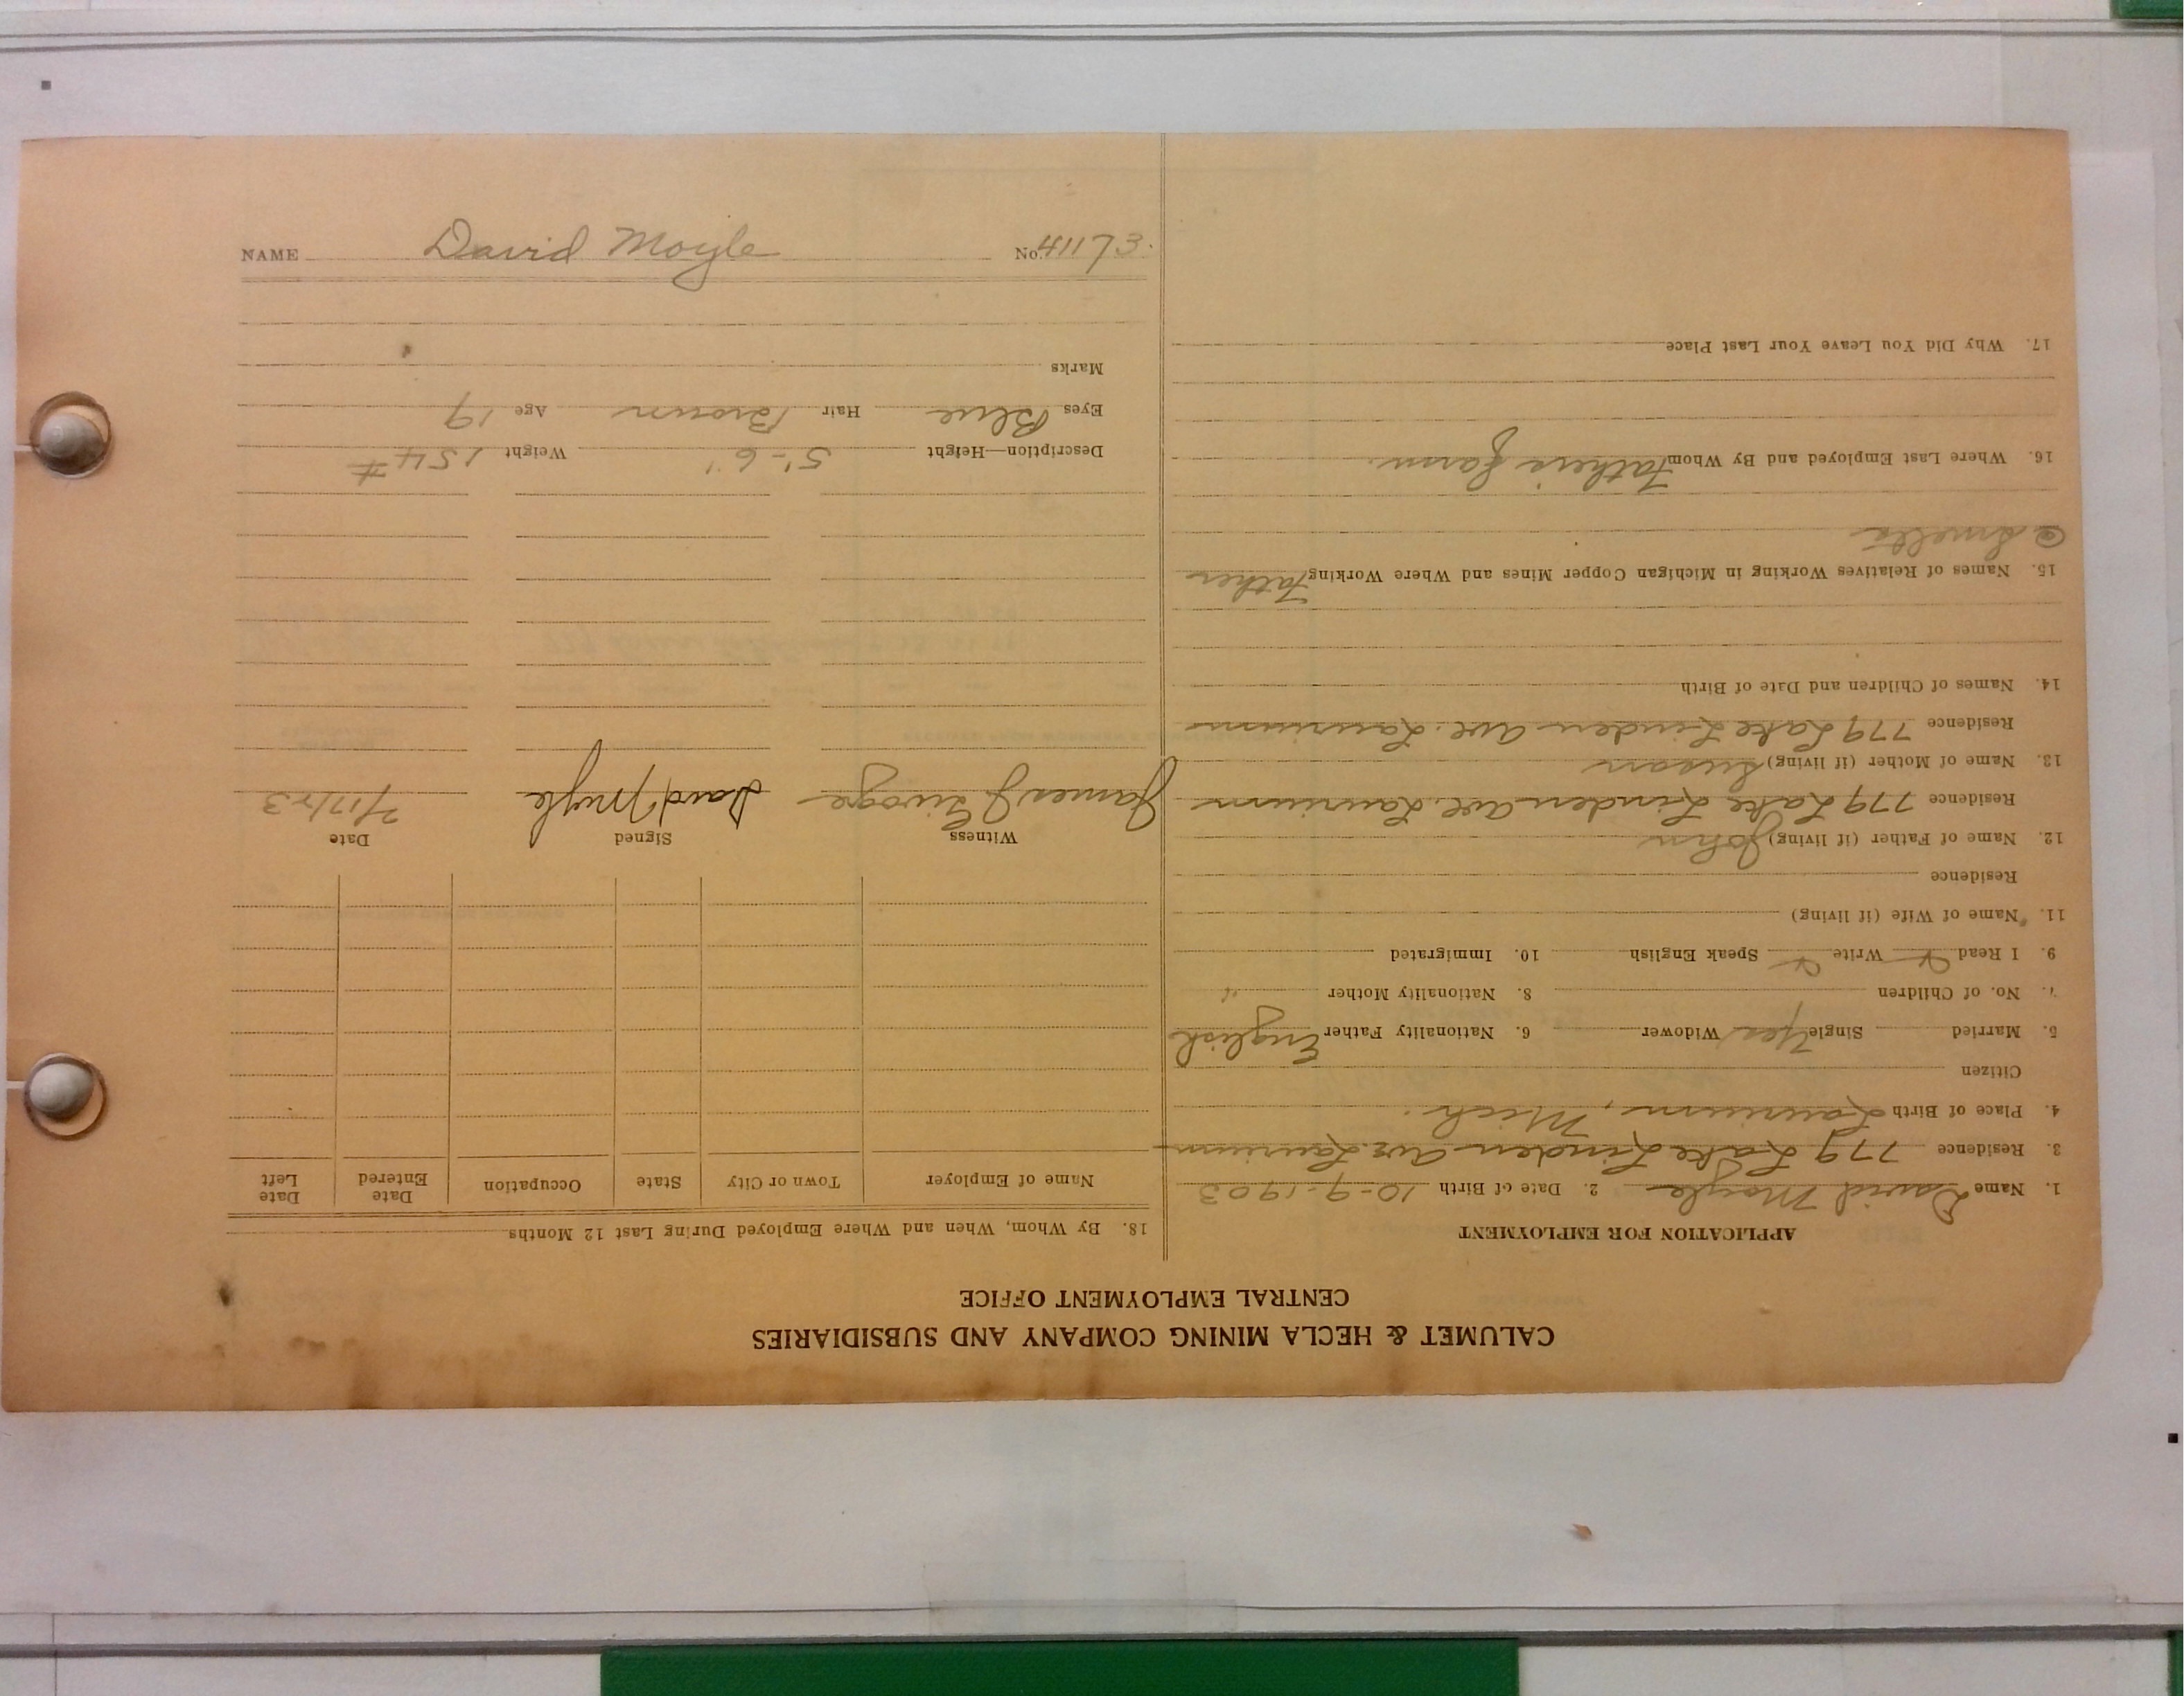 CALUMET & HECLA MINING COMPANY AND SUBSIDIARIES
CENTRAL EMPLOYMENT OFFICE
APPLICATION FOR EMPLOYMENT
1. Name David Moyle 2. Date of Birth 10-9-1903
3. Residence 779 Lake Linden Ave. Laurium
4. Place of Birth Laurium, Mich.
Citizen
5. Married Single Yes Widower 6. Nationality Father English
7. No. of Children 8. Nationality Mother "
9. I Read Write Speak English 10. Immigrated
11. Name of Wife (if living)
Residence
12. Name of Father (if living) John
Residence 779 Lake Linden Ave. Laurium
13. Name of Mother (if living) Susan
Residence 779 Lake Linden Ave. Laurium
14. Names of Children and Date of Birth
15. Names of Relatives Working in Michigan Copper Mines and Where Working Father
@ Smelter
16. Where Last Employed and By Whom Father's farm.
17. Why Did You Leave Your Last Place
18. By Whom, When and Where Employed During Last 12 Months
Name of Employer Town or City State Occupation Date Entered Date Left
Witness Signed Date
James J David Moyle 7/17/23
Description—Height 5'-6" Weight 154 #
Eyes Blue Hair Brown Age 19
Marks
NAME David Moyle No. 41173.